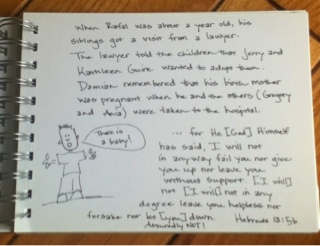 When Rafal was about a year old, his
siblings got a visit from a lawyer.
The lawyer told the children that Jerry and
Kathleen Guire wanted to adopt them.
Damian remembered that his birth mother
was pregnant when he and the others (Gregory
and Ania) were taken to the hospital.
There is
a baby!
... for He [God] Himself
has said, I will not
in any way fail you nor give
you up nor leave you
without support. [I will]
not [I will] not in any
degree leave you helpless nor
forsake nor let [you] down
Assuredly NOT!
Hebrews 13:5b